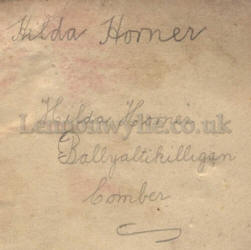 Hilda Horner
Hilda Horner
Lennonwylie.co.uk
Ballyaltikilligan
Comber